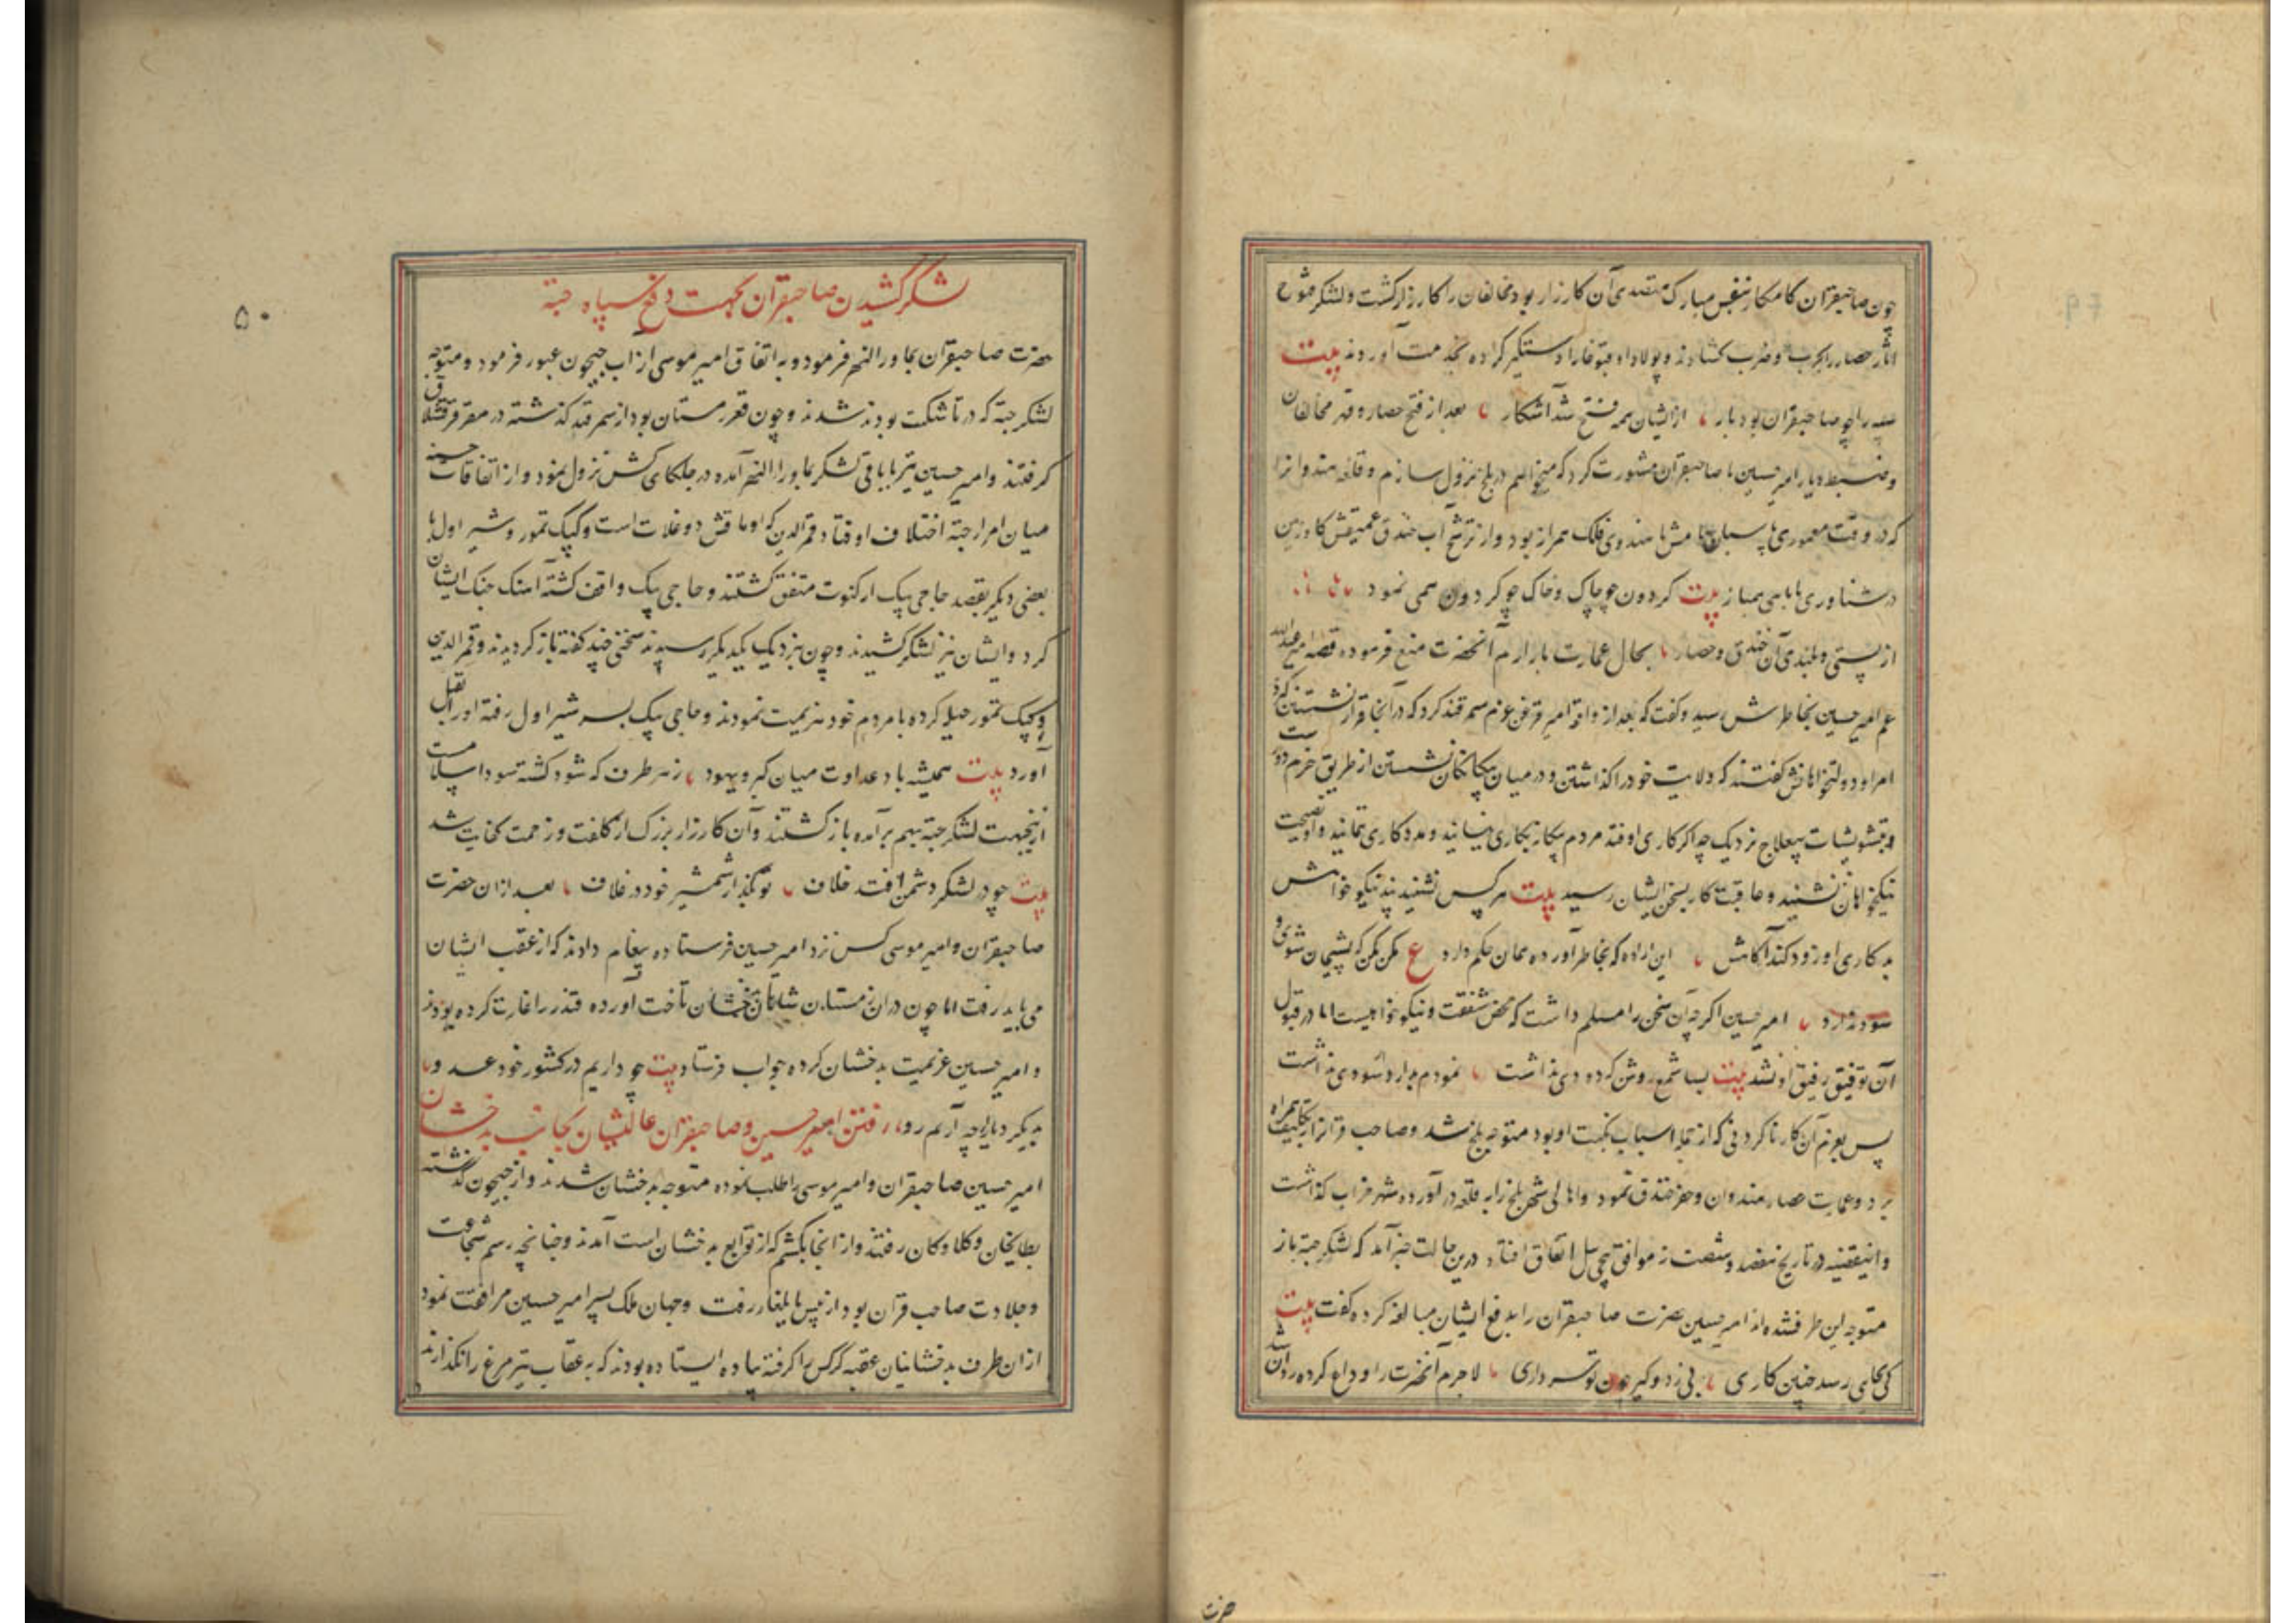 چون صاحبقران کامکار بنفس مبارک متصدی آن کارزار بود مخالفان را کار زار گشت و لشکر فتوح
آثار حصار را بحرب و ضرب کشادند و پولاد و اقبوغا را دستگیر کرده بخدمت آوردند بیت
سپه را چو صاحبقران بود یار از ایشان همه فتح شد آشکار بعد از فتح حصار و قهر مخالفان
و ضبط دیار امیر حسین با صاحبقران مشورت کرد که میخواهم در بلخ نزول سازم و قلعه هندوانرا
که در وقت معموری پاسبان بامش با هندوی فلک همراز بود و از ترشح آب خندق عمیقش کاو زمین
در شناوری با ماهی همباز بیت کردون چو چاک و خاک چو کردون همی نمود
از پستی و بلندی آن خندق و حصار بحال عمارت باز آرم آنحضرت منع فرموده قصه امیر عبدالله
عم امیر حسین بخاطرش رسید و گفت که بعد از واقعه امیر قزغن عزم سمرقند کرد که در آنجا قرار نشستن کند
امرا و دولتخواهانش گفتند که ولایت خود را گذاشتن و در میان بیگانگان نشستن از طریق حزم دور است
و بتشویشات بیعلاج نزدیک چه اگر کاری اوفتد مردم بیگانه بکاری نیایند و مددکاری ننمایند و او نصیحت
نیکخواهان نشنید و عاقبت کار بسخن ایشان رسید بیت هر کس نشنید پند نیکو خواهش
بد کاری او زود کند آگاهش این اراده که بخاطر آورده همان حکم دارد ع مکن مکن که پشیمان شوی و
سود ندارد امیر حسین اگرچه آن سخن را مسلم داشت که محض شفقت و نیکو خواهیست اما در قبول
آن توفیق رفیق او نشد بیت بسا شمع روشن کرده دی نداشت نمودم بدو سودی نداشت
پس بعزم آن کار ناکردنی که از جمله اسباب نکبت او بود متوجه بلخ شد و صاحب قرانرا بتکلیف همراه
برد و عمارت حصار هندوان و حفر خندق نمود و اهالی شهر بلخ را بقلعه در آورده شهر خراب گذاشت
و این قضیه در تاریخ هفصد و شصت و نه موافق پیچی ئیل اتفاق افتاد درین حالت خبر آمد که لشکر جته باز
متوجه این طرف شده اند امیر حسین حضرت صاحبقران را بدفع ایشان مبالغه کرده گفت بیت
کی بجای رسد چنین کاری بی زد و گیر چون تو سرداری لاجرم آنحضرت را وداع کرده روان شد
حضرت
۵۰
لشکر کشیدن صاحبقران بجهت دفع سپاه جته
حضرت صاحبقران بماوراالنهر فرمود و به اتفاق امیر موسی از آب جیحون عبور فرمود و متوجه
لشکر جته که در تاشکت بودند شدند و چون قعر زمستان بود از سمرقند گذشته در مقر قشلاق
گرفتند و امیر حسین نیز با باقی لشکر بماوراالنهر آمده در جلکای کش نزول نمود و از اتفاقات حسنه
میان امرا جته اختلاف اوفتاد قمرالدین که اوماقش دوغلات است و کپک تمور و شیر اول با
بعضی دیگر بقصد حاجی بیک ارکنوت متفق گشتند و حاجی بیک واقف گشته آهنک جنک ایشان
کرد و ایشان نیز لشکر کشیدند و چون نزدیک یکدیگر رسیدند سخنی چند گفته باز گردیدند و قمرالدین
و کپک تمور حیله کرده با مردم خود هزیمت نمودند و حاجی بیک بسر شیر اول رفته او را بقتل
آورد بیت همیشه باد عداوت میان گبر و یهود ز هر طرف که شود کشته سود اسلامست
ازینجهت لشکر جته بهم برآمده باز گشتند و آن کارزار بزرگ از کلفت و زحمت کفایت شد
بیت چو در لشکر دشمن افتد خلاف تو بگذار شمشیر خود در غلاف بعد از ان حضرت
صاحبقران و امیر موسی کس نزد امیر حسین فرستاده پیغام دادند که از عقب ایشان
می باید رفت اما چون در ان زمستان شاهان بدخشان تاخت آورده قندز را غارت کرده بودند
و امیر حسین عزیمت بدخشان کرده جواب فرستاد بیت چو داریم در کشور خود عدو
بدیگر دیار از چه آریم رو رفتن امیر حسین و صاحبقران عالیشان بجانب بدخشان
امیر حسین صاحبقران و امیر موسی را طلب نموده متوجه بدخشان شدند و از جیحون گذشته
بطایخان و کلاوکان رفتند و از انجا بکشم که از توابع بدخشان است آمدند و چنانچه رسم شجاعت
و جلادت صاحب قران بود از پیش بایلغار رفت و جهان ملک پسر امیر حسین مرافقت نمود
از ان طرف بدخشانیان عقبه گرکس را گرفته پیاده ایستاده بودند که به عقاب تیر مرغ را نگذارند